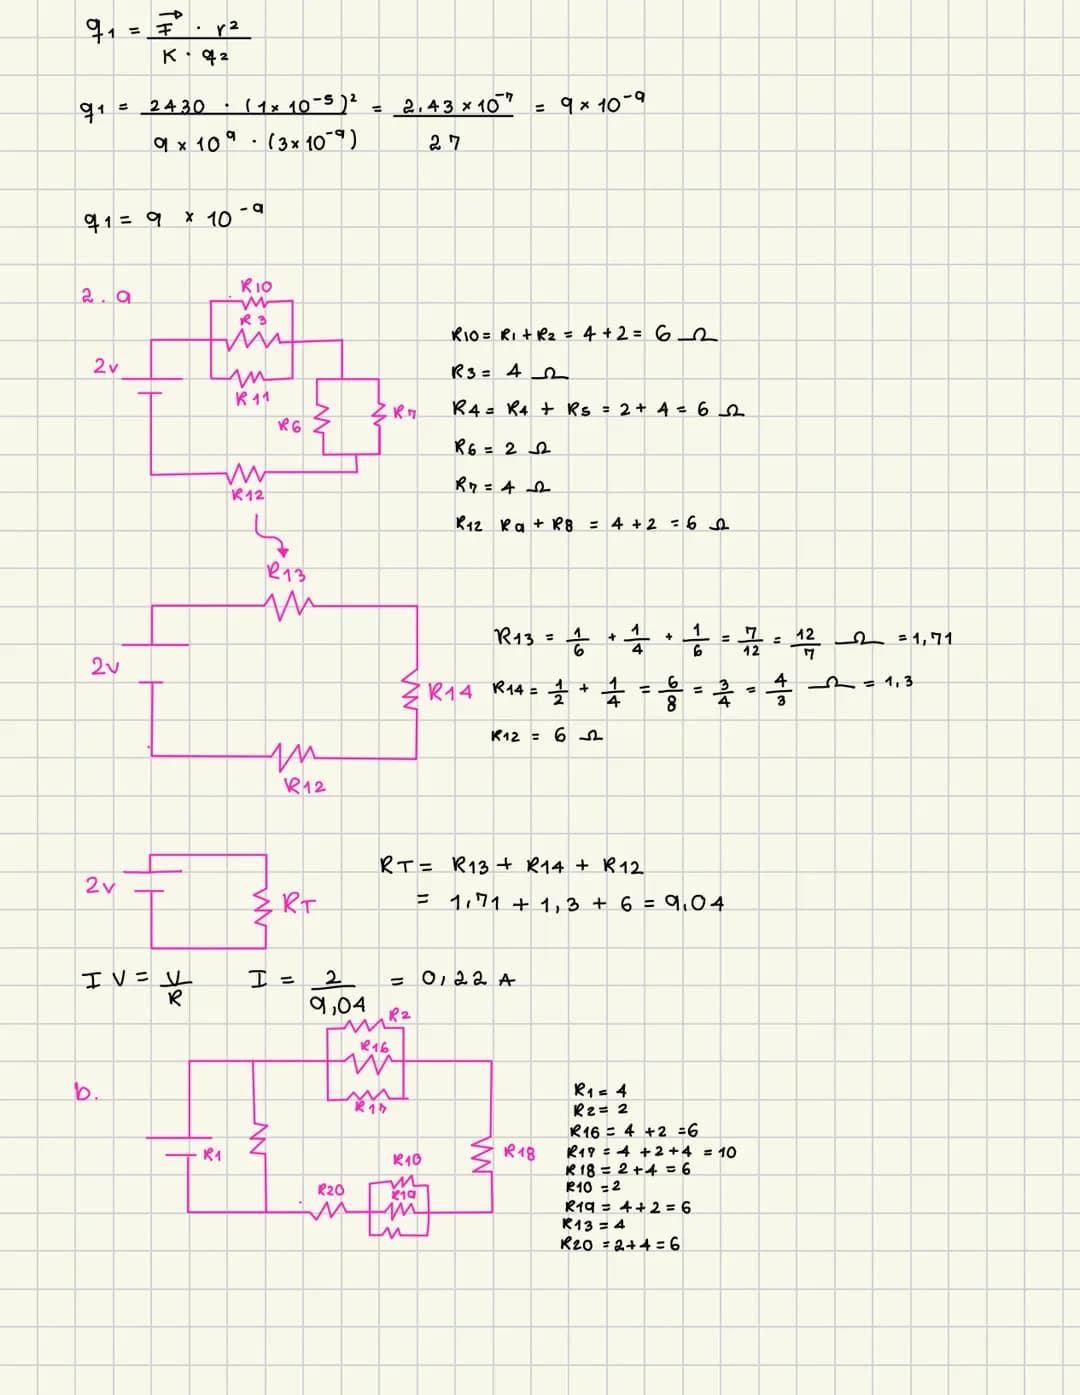 q1 = F⃗ · r² / K · q2
q1 = 2430 · (1x 10⁻⁵)² / 9 x 10⁹ · (3x 10⁻⁹) = 2.43 x 10⁻⁷ / 27 = 9 x 10⁻⁹
q1 = 9 x 10⁻⁹
2. a
R10
R3
2v
R11
R6
R7
R12
R10 = R1 + R2 = 4 + 2 = 6 Ω
R3 = 4 Ω
R4 = R4 + R5 = 2 + 4 = 6 Ω
R6 = 2 Ω
R7 = 4 Ω
R12 Rq + R8 = 4 + 2 = 6 Ω
R13
2v
R14
R12
R13 = 1/6 + 1/4 + 1/6 = 7/12 = 12/7 Ω = 1,71
R14 = 1/2 + 1/4 = 6/8 = 3/4 = 4/3 Ω = 1,3
R12 = 6 Ω
2v
RT
RT = R13 + R14 + R12
= 1,71 + 1,3 + 6 = 9,04
I V = V/R I = 2/9,04 = 0,22 A
b.
R2
R16
R17
R1
R18
R10
R20
R19
R1 = 4
R2 = 2
R16 = 4 + 2 = 6
R17 = 4 + 2 + 4 = 10
R18 = 2 + 4 = 6
R10 = 2
R19 = 4 + 2 = 6
R13 = 4
R20 = 2 + 4 = 6